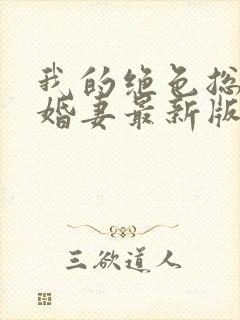 我的绝色总
婚妻最新版
三欲道人